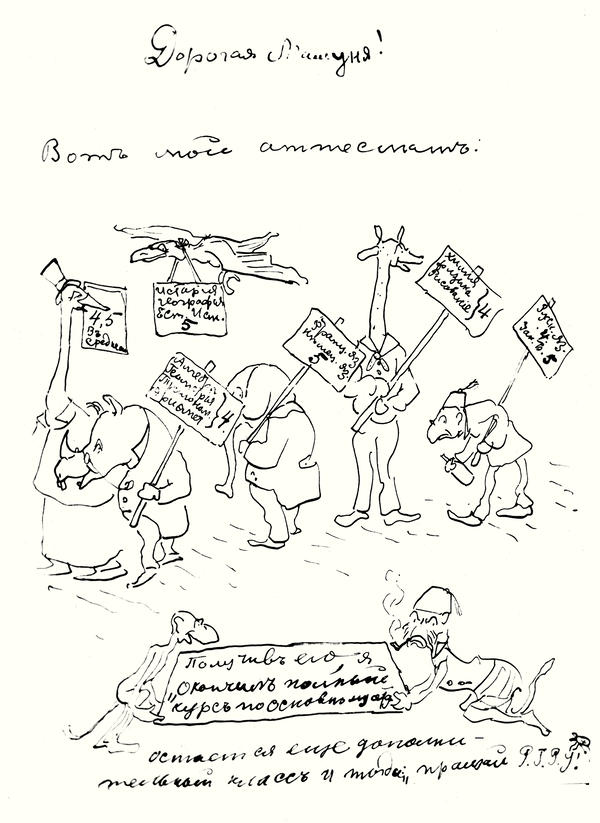 Дорогая Машуня!
Вотъ мой аттестатъ:
4,5
Въ
среднем
Исторія
географія
Ест. Ист.
5
Алгебра
Геометрія
Тригоном
Ариѳмет
4
Франц. яз
Нѣмец. яз
5
Химія
физика
Рисованіе
4
Русск. яз.
и
Зак. Б. 5
Получивъ его, я
„окончилъ полный
курсъ по основному
остается еще дополни-
тельный классъ и тогда, прощай Р.Г.Р.У!